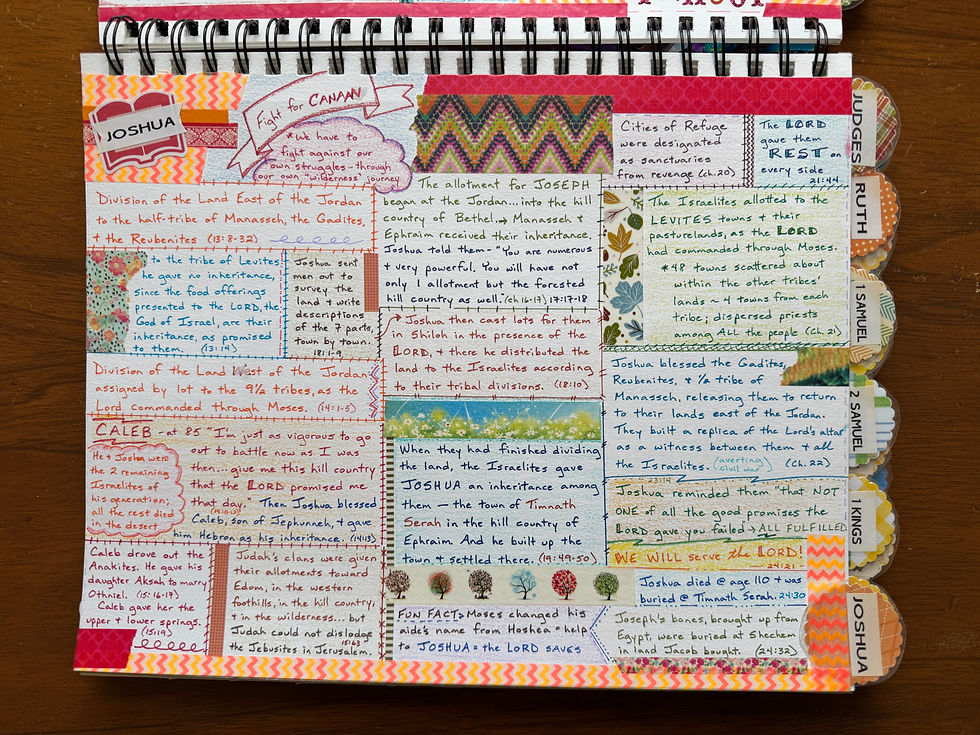 JOSHUA
Fight for CANAAN
*We have to
fight against our
own struggles - through
our own "wilderness" journey
Division of the Land East of the Jordan
to the half-tribe of Manasseh, the Gadites,
+ the Reubenites (13:8-32)
to the tribe of Levites
he gave no inheritance,
since the food offerings
presented to the LORD, the
God of Israel, are their
inheritance, as promised
to them. (13:14)
Joshua sent
men out to
survey the
land + write
descriptions
of the 7 parts,
town by town.
18:1-9
Division of the Land West of the Jordan
assigned by lot to the 9½ tribes, as the
Lord commanded through Moses. (14:1-5)
CALEB - at 85 "I'm just as vigorous to go
out to battle now as I was
then... give me this hill country
that the LORD promised me
that day." Then Joshua blessed
(14:10-13)
Caleb, son of Jephunneh, + gave
him Hebron as his inheritance. (14:13)
He + Josha were
the 2 remaining
Israelites of
his generation;
all the rest died
in the desert
Caleb drove out the
Anakites. He gave his
daughter Aksah to marry
Othniel. (15:16-17)
Caleb gave her the
upper + lower springs.
(15:19)
Judah's clans were given
their allotments toward
Edom, in the western
foothills, in the hill country,
+ in the wilderness... but
Judah could not dislodge
the Jebusites in Jerusalem.
15:63
The allotment for JOSEPH
began at the Jordan... into the hill
country of Bethel → Manasseh +
Ephraim received their inheritance.
Joshua told them - "You are numerous
+ very powerful. You will have not
only 1 allotment but the forested
hill country as well. (ch.16-17) 17:17-18
Joshua then cast lots for them
in Shiloh in the presence of the
LORD, + there he distributed the
land to the Israelites according
to their tribal divisions. (18:10)
When they had finished dividing
the land, the Israelites gave
JOSHUA an inheritance among
them - the town of Timnath
Serah in the hill country of
Ephraim. And he built up the
town + settled there. (19:49-50)
FUN FACT: Moses changed his
aide's name from Hoshea = help
to JOSHUA = the LORD saves
Cities of Refuge
were designated
as sanctuaries
from revenge (ch.20)
The LORD
gave them
REST on
every side
21:44
The Israelites allotted to the
LEVITES towns + their
pasturelands, as the LORD
had commanded through Moses.
*48 towns scattered about
within the other tribes'
lands ~ 4 towns from each
tribe; dispersed priests
among ALL the people (Ch.21)
Joshua blessed the Gadites,
Reubenites, + ½ tribe of
Manasseh, releasing them to return
to their lands east of the Jordan.
They built a replica of the Lord's altar
as a witness between them + all
the Israelites. (averting civil war) (Ch.22)
23:14
Joshua reminded them "that NOT
ONE of all the good promises the
LORD gave you failed → ALL FULFILLED
WE WILL serve the LORD!
24:21
Joshua died @ age 110 + was
buried @ Timnath Serah. 24:30
Joseph's bones, brought up from
Egypt, were buried at Shechem
in land Jacob bought. (24:32)
JUDGES
RUTH
1 SAMUEL
2 SAMUEL
1 KINGS
JOSHUA